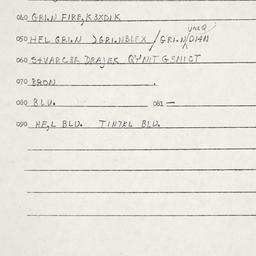 040 GRI.N FIRE,K3XDIK
050 HEL GRI.N )GRI.NBLFX/GRI.N/DI4N
060 S4VARC3R DRAJEK QYNIT GSNICT
070 BRON.
080 BLU. 081 —
090 HE,L BLU. TIN7KL BLU.